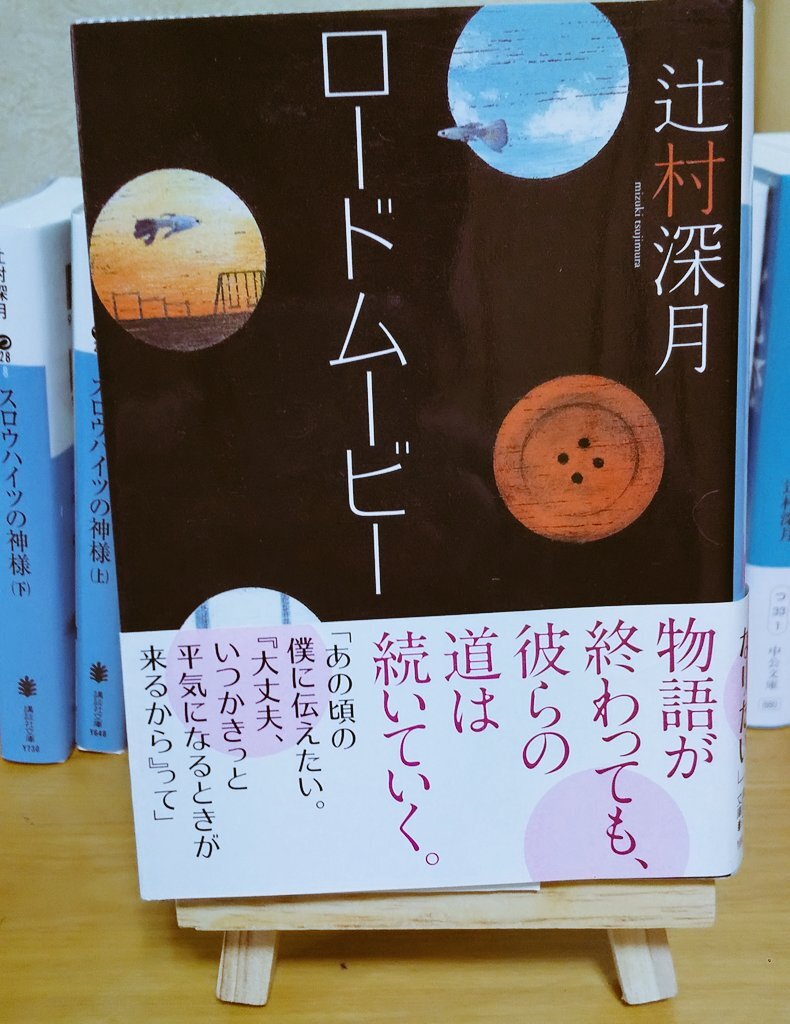 辻村深月
mizuki tsujimura
ロードムービー
物語が
終わっても、
彼らの
道は
続いていく。
「あの頃の
僕に伝えたい。
『大丈夫、
いつかきっと
平気になるときが
来るから』って」
なりたい」
辻村深月
28
スロウハイツの神様(下)
講談社文庫
¥730
スロウハイツの神様(上)
講談社文庫
¥648
辻村深月
つ
33
1
中公文庫